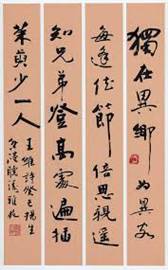 獨在異鄉為異客
每逢佳節倍思親遙
知兄弟登高處遍插
茱萸少一人
王維詩